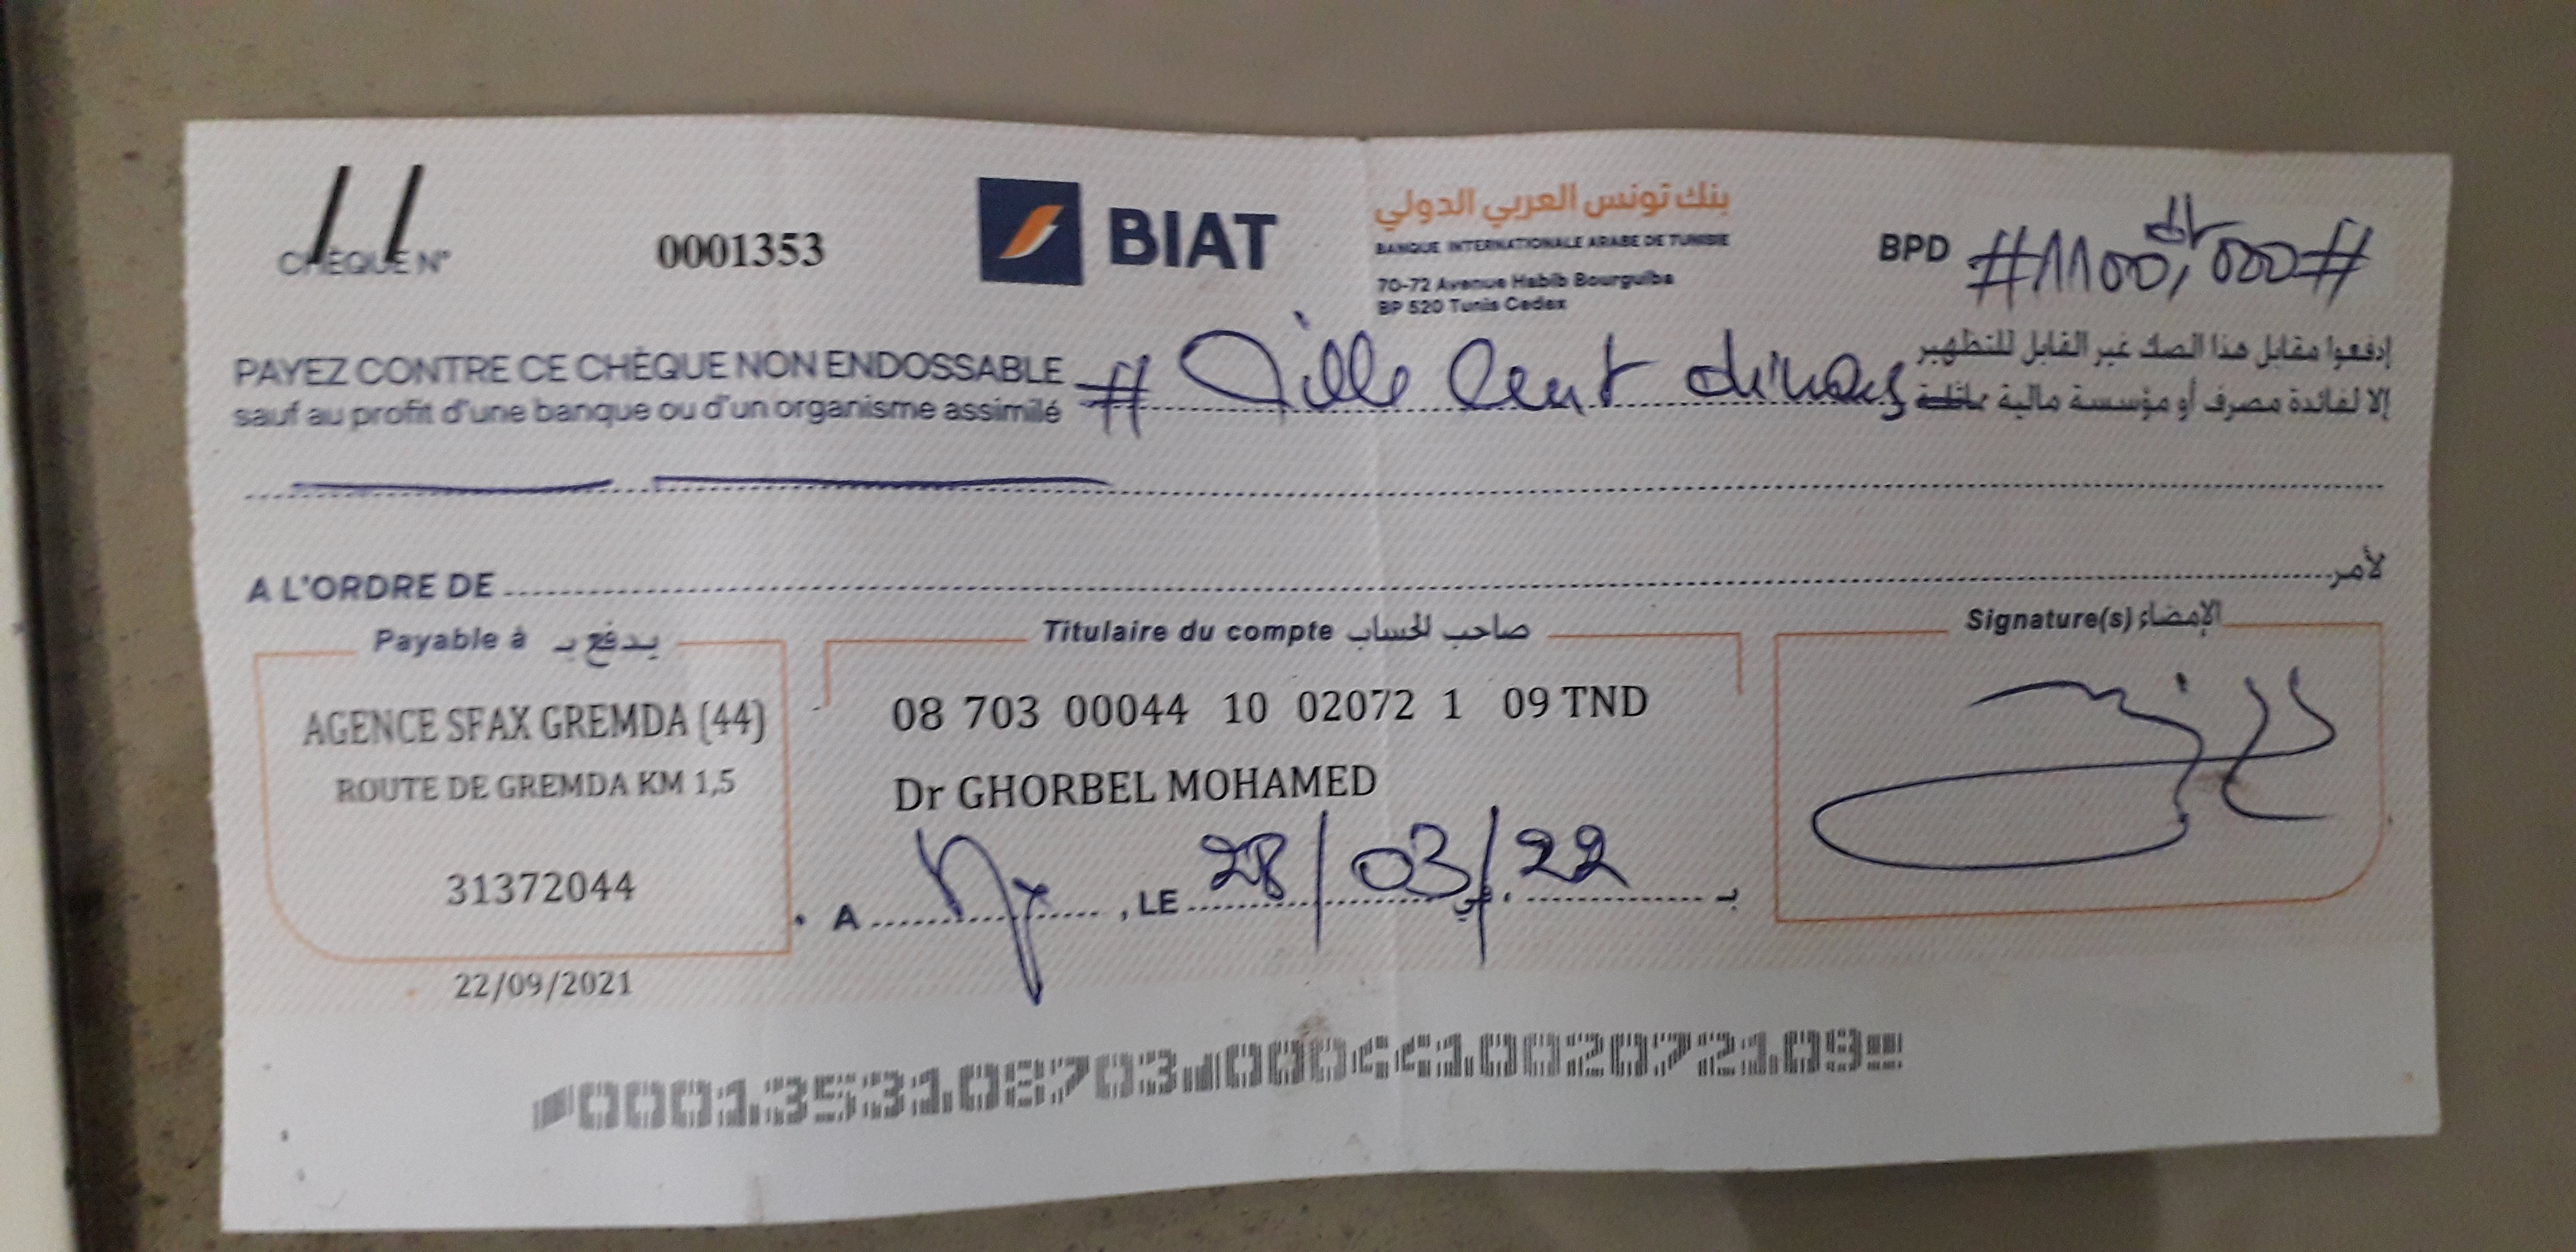 CHÈQUE N° 0001353
BIAT
بنك تونس العربي الدولي
BANQUE INTERNATIONALE ARABE DE TUNISIE
70-72 Avenue Habib Bourguiba
BP 520 Tunis Cedex
BPD #1100,000#
PAYEZ CONTRE CE CHÈQUE NON ENDOSSABLE
sauf au profit d'une banque ou d'un organisme assimilé
إدفعوا مقابل هذا الصك غير القابل للتظهير
إلا لفائدة مصرف أو مؤسسة مالية مماثلة
# Mille Cent dinars
A L'ORDRE DE لأمر
Payable à يدفع بـ
AGENCE SFAX GREMDA (44)
ROUTE DE GREMDA KM 1,5
31372044
22/09/2021
Titulaire du compte صاحب الحساب
08 703 00044 10 02072 1 09 TND
Dr GHORBEL MOHAMED
A , LE 28/03/22 في، بـ
Signature(s) الإمضاء